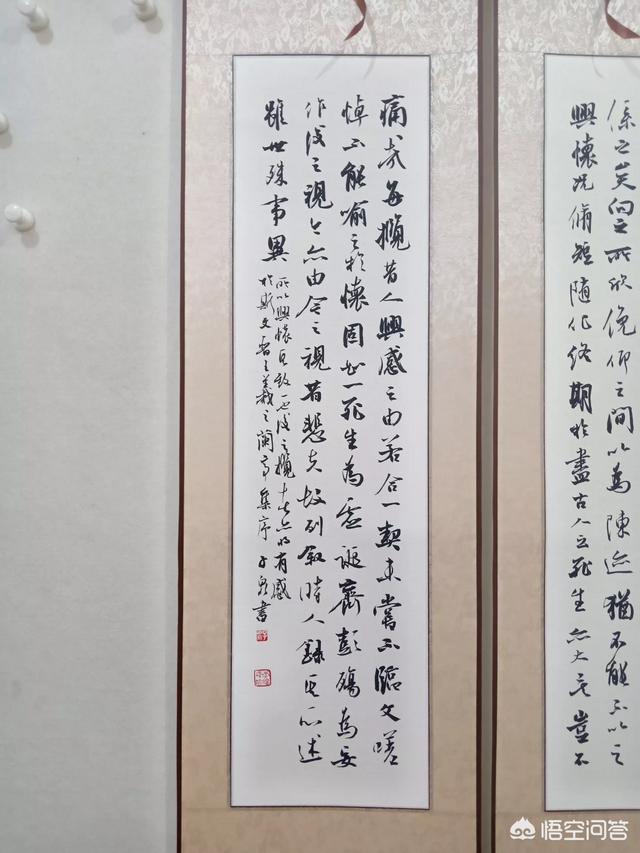 係之矣向之所欣俛仰之間以為陳迹猶不能不以之
興懷況脩短隨化終期於盡古人云死生亦大矣豈不
痛哉每攬昔人興感之由若合一契未嘗不臨文嗟
悼不能喻之於懷固知一死生為虛誕齊彭殤為妄
作後之視今亦由今之視昔悲夫故列敘時人錄其所述
雖世殊事異
所以興懷其致一也後之攬者亦將有感
於斯文晉王羲之蘭亭集序書
悟空问答